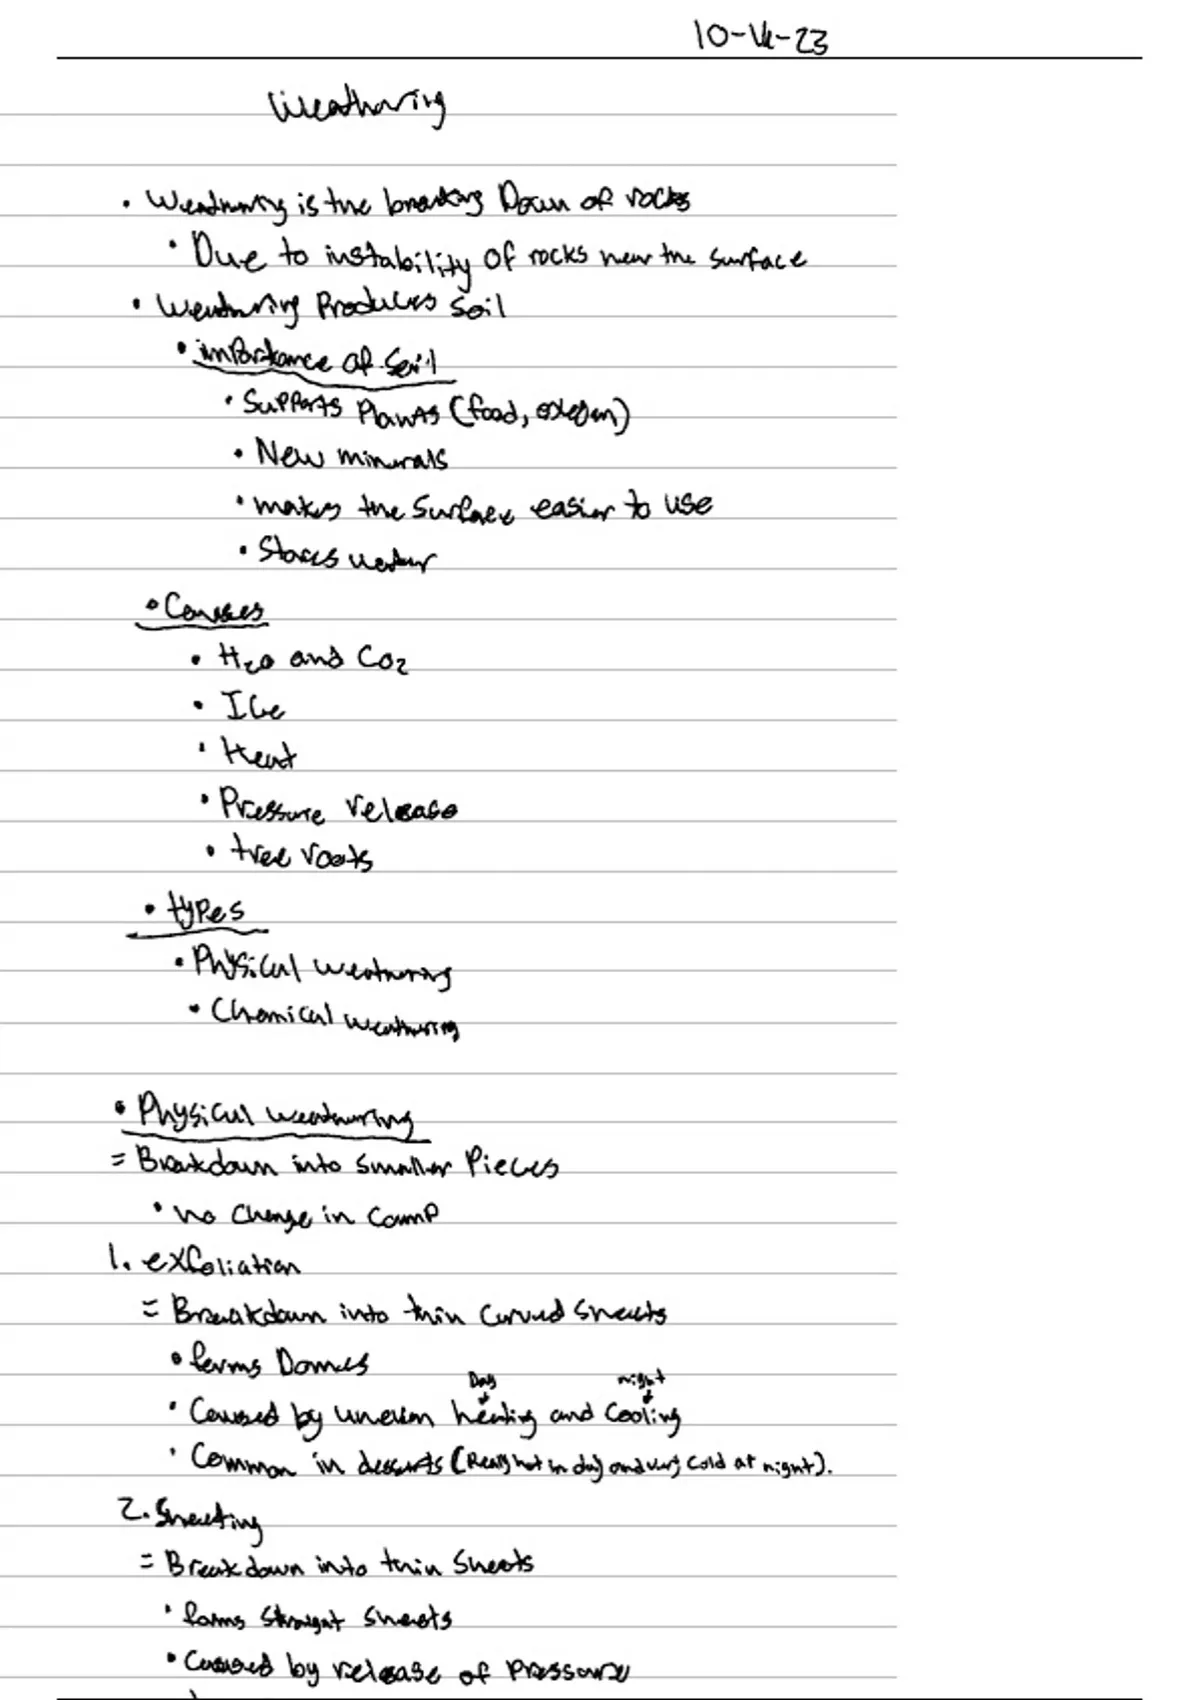 10-  -23
Weathering
• Weathering is the breaking Down of rocks
• Due to instability of rocks near the surface
• Weathering Produces soil
• importance of Soil
• Supports Plants (food, oxegen)
• New minerals
• makes the Surface easier to use
• Stores water
• Causes
• H2O and CO2
• Ice
• Heat
• Pressure release
• tree roots
• types
• Physical weathering
• Chemical weathering
• Physical weathering
= Breakdown into smaller Pieces
• no change in comp
1. exfoliation
= Breakdown into thin Curved Sheets
• forms Domes
Day night
• Caused by uneven heating and Cooling
• Common in desserts (Really hot in day and very cold at night).
2. Sheeting
= Breakdown into thin Sheets
• forms straight sheets
• Caused by release of Pressure